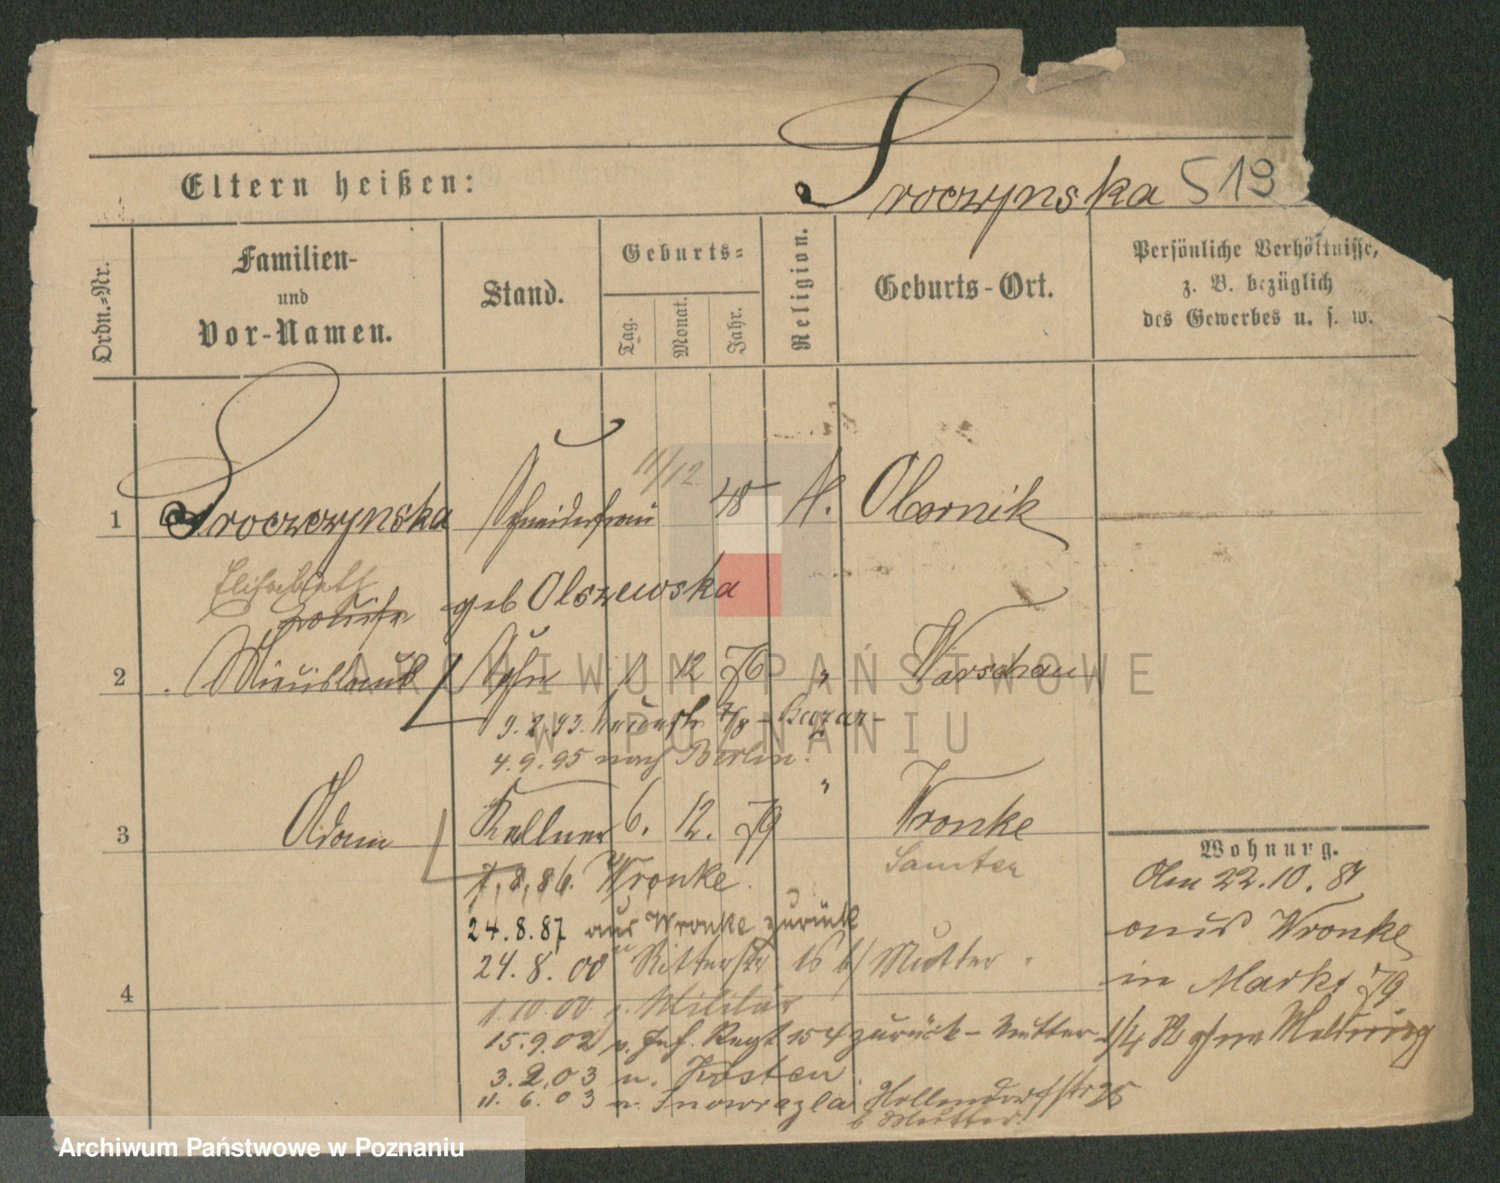 Sroczynska 519
Eltern heißen:
Ordn.-Nr.
Familien-
und
Vor-Namen.
Stand.
Geburts-
Tag.
Monat.
Jahr.
Religion.
Geburts-Ort.
Persönliche Verhältnisse,
z. B. bezüglich
des Gewerbes u. s. w.
1 Sroczczynska Schneiderfrau 11/12 48 K. Obornik
Elisabeth
geb Olszewska
2 Sohn 12 76 " Warschau
9.2.93. 7/8 - Bazar -
4.9.95 nach Berlin.
"
3 Adam Kellner 6. 12. 79 Wronke
Samter
7.8.86. Wronke.
24.8.87 aus Wronke zurück
24.8.00 " Ritterstr 16 b/ Mutter.
4
1.10.00 z. Militär
15.9.02 v. Inf. Regt 154 zurück - Mutter -
3.2.03 n. Kosten
11.6.03 n. Inowrazlaw Hollendorfstr 25
b Mutter!
Wohnung.
Den 22.10.81
aus Wronke
in Markt 79
1/4 ohne Meldung
ARCHIWUM PAŃSTWOWE
W POZNANIU
Archiwum Państwowe w Poznaniu